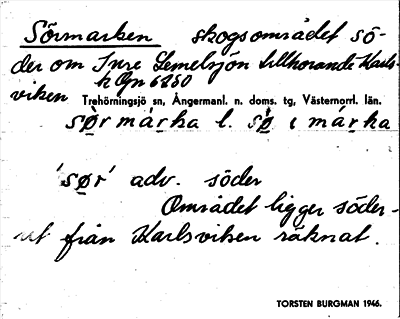 Sörmarken skogsområdet sö-
der om Inre Lemelsjön tillhörande Karls-
k Ogn 6250
viken Trehörningsjö sn, Ångermanl. n. doms. tg, Västernorrl. län.
sø̀r márka l. sø̀ i márka
'sør' adv. söder
Området ligger söder-
ut från Karlsviken räknat.
TORSTEN BURGMAN 1946.